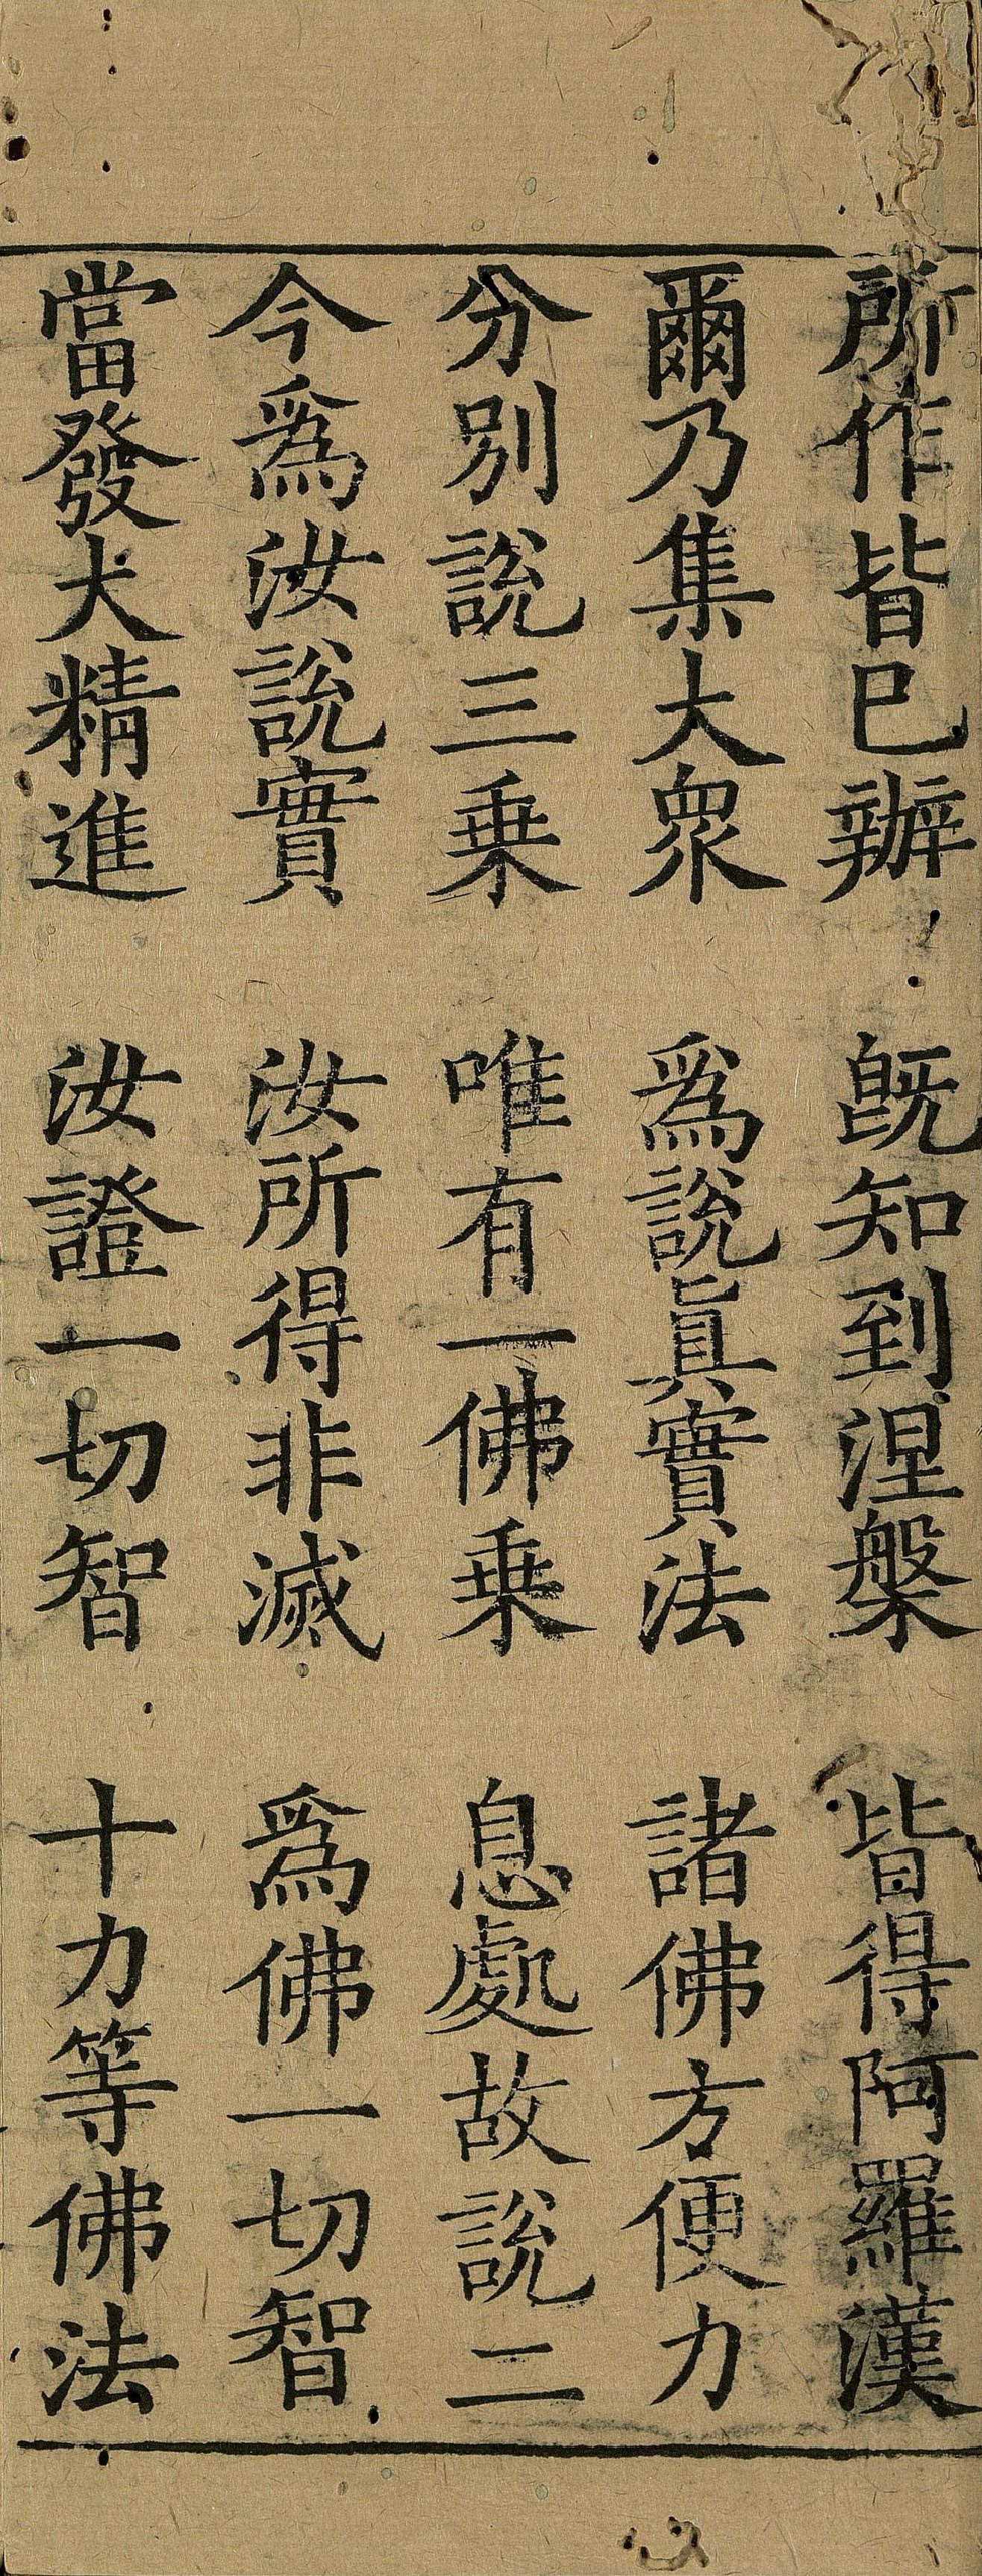 所作皆已辦　既知到涅槃　皆得阿羅漢
爾乃集大眾　爲說眞實法　諸佛方便力
分別說三乗　唯有一佛乗　息處故說二
今爲汝說實　汝所得非滅　爲佛一切智
當發大精進　汝證一切智　十力等佛法